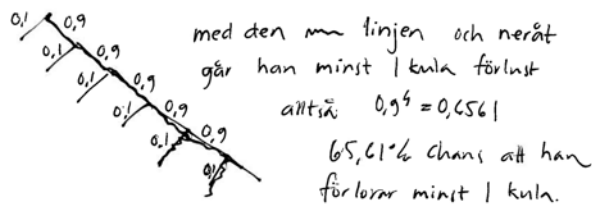 0,1 0,9
0,1 0,9
0,1 0,9
0,1 0,9
0,1 0,9
0,1
med den linjen och neråt
går han minst 1 kula förlust
alltså 0,9⁴ = 0,6561
65,61% chans att han
förlorar minst 1 kula.